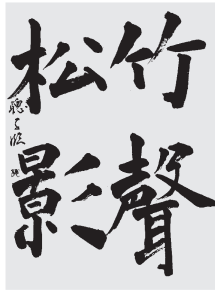 竹聲
松影
聽雨臨